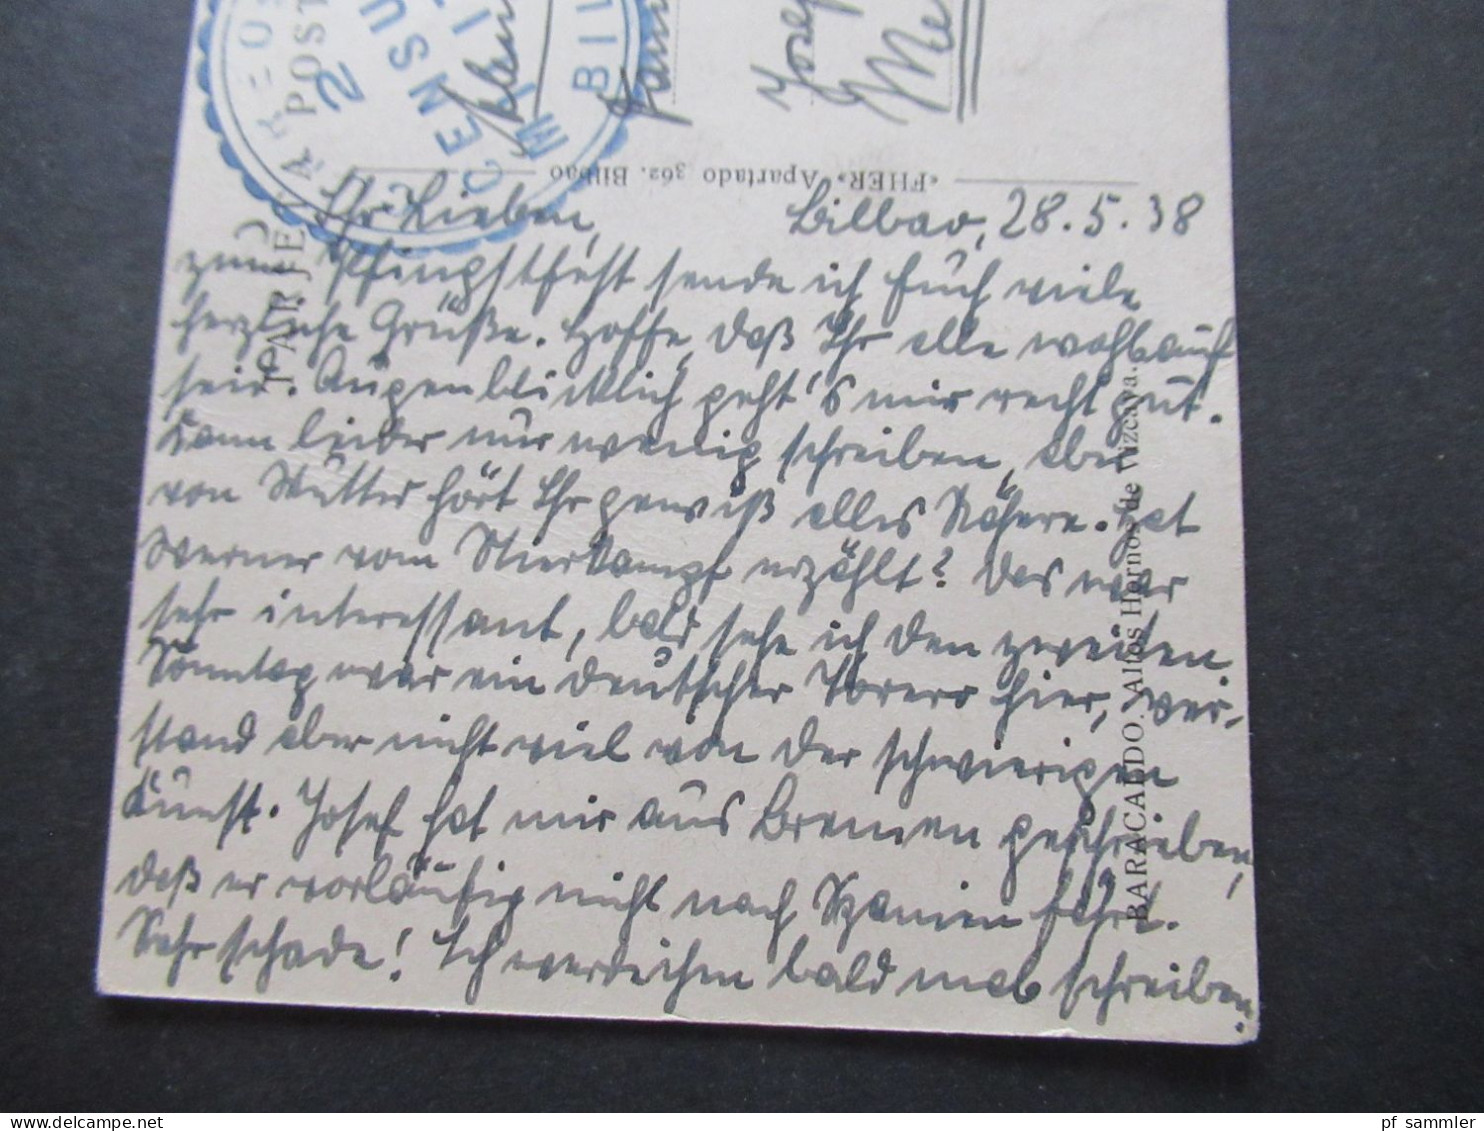 Ihr Lieben,
Bilbao, 28.5.38
zum Pfingstfest sende ich Euch viele
herzliche Grüße. Hoffe, daß Ihr alle wohlauf
seid. Augenblicklich geht's mir recht gut.
Kann leider nur wenig schreiben, aber
von Mutter hört Ihr gewiß alles Nähere. Hat
Werner vom Stierkampf erzählt? Das war
sehr interessant, bald sehe ich den zweiten.
Sonntag war ein deutscher Torero hier, ver-
stand aber nicht viel von der schwierigen
Kunst. Josef hat mir aus Bremen geschrieben,
daß er vorläufig nicht nach Spanien fährt.
Sehr schade! Ich werde ihm bald mal schreiben.
«FHER» Apartado 362. Bilbao
BARACALDO. Altos Hornos de Vizcaya.
TARJE
POST
CENSU
MILI
BIL
2
Josef
Me
pf_sammler